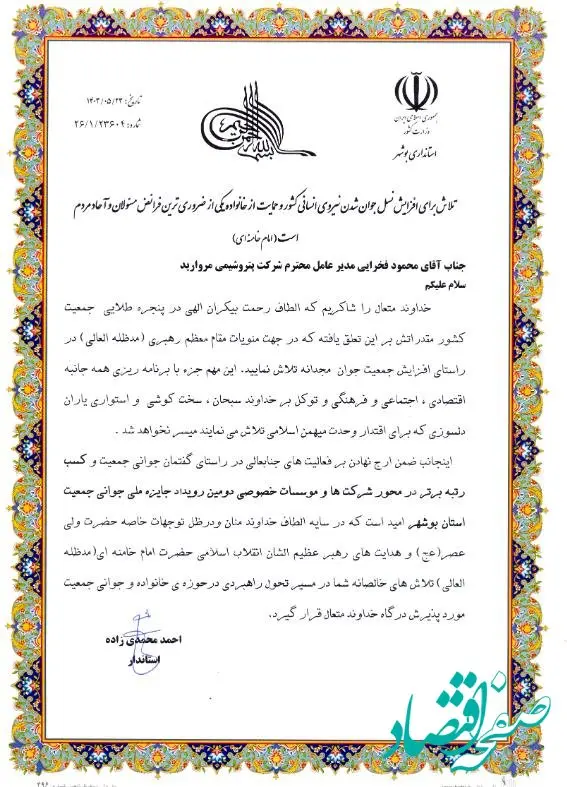 جمهوری اسلامی ایران
وزارت کشور
استانداری بوشهر
تاریخ: ۱۴۰۳/۰۵/۲۳
شماره: ۲۶/۱/۲۳۶۰۴
تلاش برای افزایش نسل جوان شدن نیروی انسانی کشور و حمایت از خانواده یکی از ضروری ترین فرائض مسئولان و آحاد مردم
است (امام خامنه ای)
جناب آقای محمود فخرایی مدیر عامل محترم شرکت پتروشیمی مروارید
سلام علیکم
خداوند متعال را شاکریم که الطاف رحمت بیکران الهی در پنجره طلایی جمعیت
کشور مقدراتش بر این تعلق یافته که در جهت منویات مقام معظم رهبری (مدظله العالی) در
راستای افزایش جمعیت جوان مجدانه تلاش نمایید. این مهم جزء با برنامه ریزی همه جانبه
اقتصادی ، اجتماعی و فرهنگی و توکل بر خداوند سبحان ، سخت کوشی و استواری یاران
دلسوزی که برای اقتدار وحدت میهمن اسلامی تلاش می نمایند میسر نخواهد شد .
اینجانب ضمن ارج نهادن بر فعالیت های جنابعالی در راستای گفتمان جوانی جمعیت و کسب
رتبه برتر در محور شرکت ها و موسسات خصوصی دومین رویداد جایزه ملی جوانی جمعیت
استان بوشهر امید است که در سایه الطاف خداوند منان ودرظل توجهات خاصه حضرت ولی
عصر(عج) و هدایت های رهبر عظیم الشان انقلاب اسلامی حضرت امام خامنه ای(مدظله
العالی) تلاش های خالصانه شما در مسیر تحول راهبردی درحوزه ی خانواده و جوانی جمعیت
مورد پذیرش درگاه خداوند متعال قرار گیرد.
احمد محمدی زاده
استاندار
صفحه اقتصاد